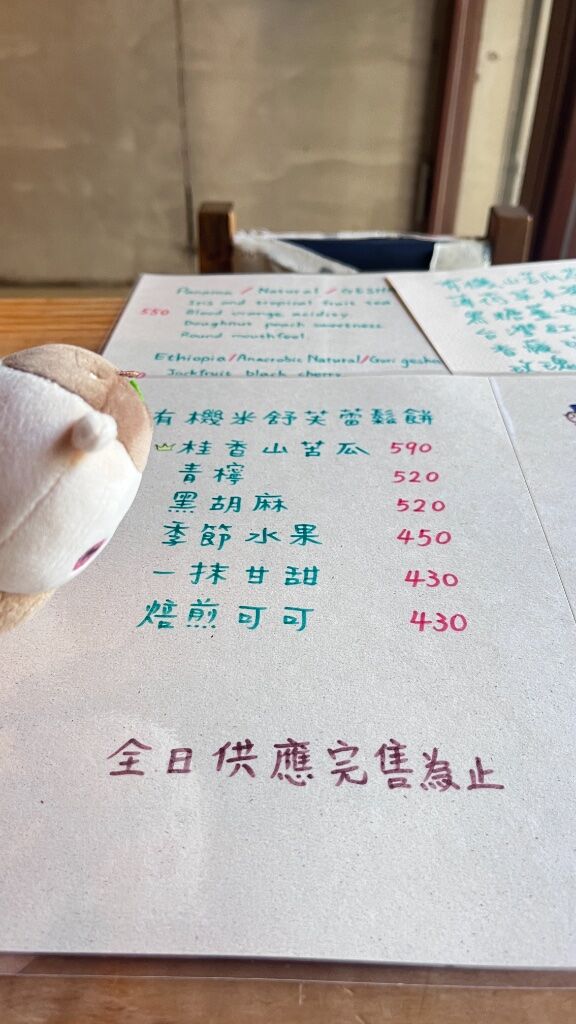 Panama / Natural / GESHA
550 Iris and tropical fruit tea
Blood orange acidity
Doughnut peach sweetness
Round mouthfeel
Ethiopia/Anaerobic Natural/Guri gesha
Jackfruit black cherry
有機山苦瓜
薄荷草本
黑糖薑
台灣紅
香蘭
玫瑰
有機米舒芙蕾鬆餅
桂香山苦瓜 590
青檸 520
黑胡麻 520
季節水果 450
一抹甘甜 430
焙煎可可 430
全日供應完售為止